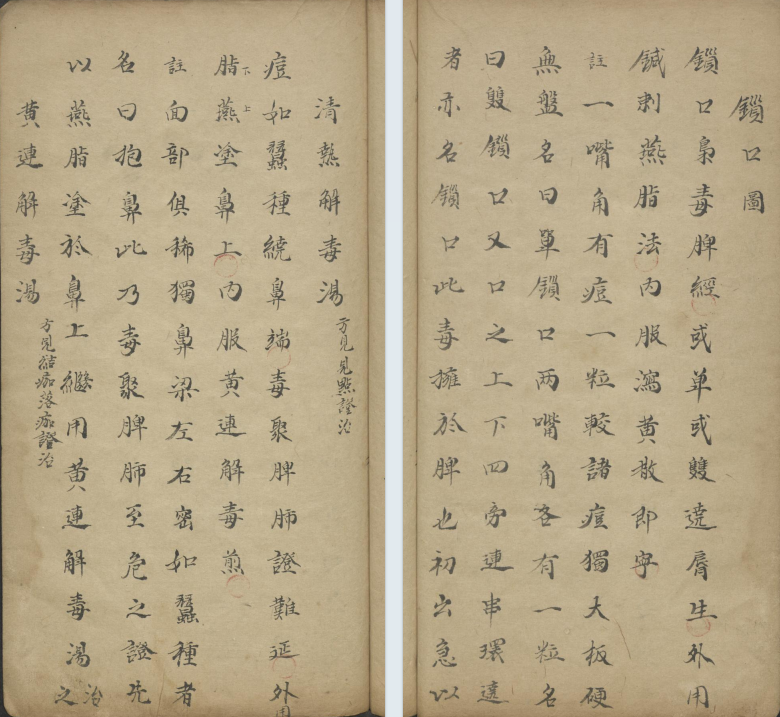 鎻口圖
鎻口梟毒脾經或单或雙遶脣生外用
鍼刺燕脂法內服瀉黃散即寧
註一嘴角有痘一粒較諸痘獨大板硬
無盤名曰單鎻口兩嘴角各有一粒名
曰雙鎻口又口之上下四旁連串環遶
者亦名鎻口此毒擁於脾也初出急以
清熱解毒湯方見見點證治
痘如蠶種繞鼻端毒聚脾肺證難延外用
脂下燕上塗鼻上內服黃連解毒煎
註面部俱稀獨鼻梁左右密如蠶種者
名曰抱鼻此乃毒聚脾肺至危之證先
以燕脂塗於鼻上繼用黃連解毒湯治之
黃連解毒湯方見結痂落痂證治